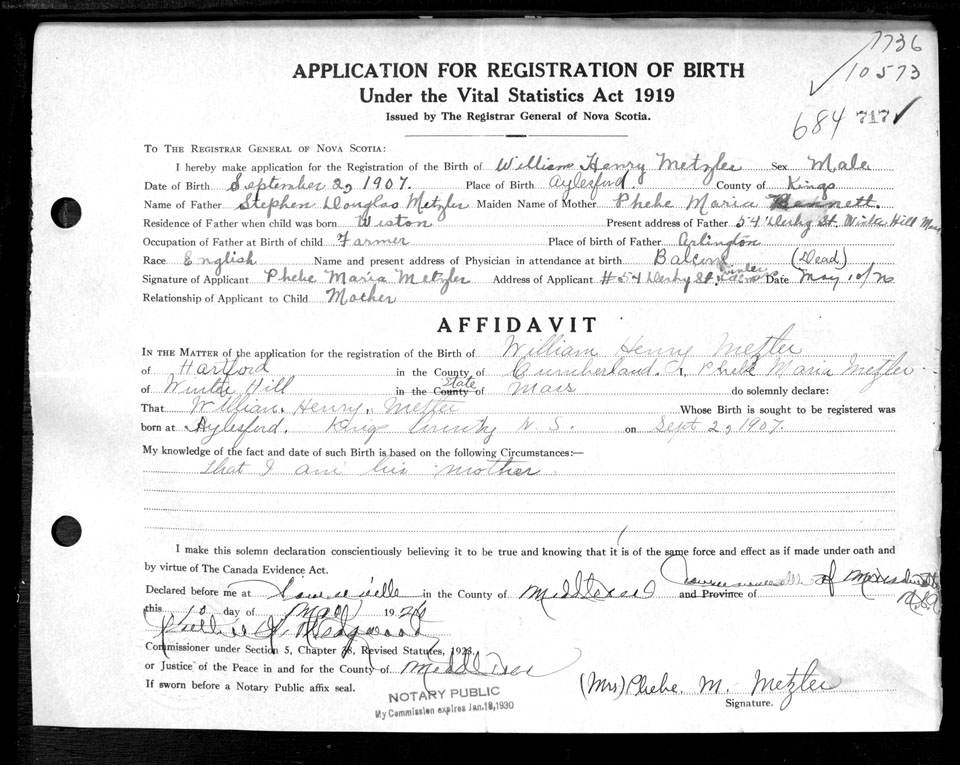 7736
10573
684 717
APPLICATION FOR REGISTRATION OF BIRTH
Under the Vital Statistics Act 1919
Issued by The Registrar General of Nova Scotia.
To The Registrar General of Nova Scotia:
I hereby make application for the Registration of the Birth of William Henry Metzler Sex Male
Date of Birth September 2, 1907. Place of Birth Aylesford. County of Kings
Name of Father Stephen Douglas Metzler Maiden Name of Mother Phebe Maria Bennett.
Residence of Father when child was born Weston Present address of Father 54 Derby St. Winter Hill Mass
Occupation of Father at Birth of child Farmer Place of birth of Father Arlington
Race English Name and present address of Physician in attendance at birth Balcom (Dead)
Signature of Applicant Phebe Maria Metzler Address of Applicant #54 Derby St. Winter Date May 10/26
Relationship of Applicant to Child Mother
AFFIDAVIT
In the Matter of the application for the registration of the Birth of William Henry Metzler
of Hartford in the County of Cumberland. Phebe Maria Metzler
of Winter Hill in the County of State Mass do solemnly declare:
That William Henry Metzler Whose Birth is sought to be registered was
born at Aylesford. Kings County N.S. on Sept 2, 1907.
My knowledge of the fact and date of such Birth is based on the following Circumstances:—
that I am his mother
I make this solemn declaration conscientiously believing it to be true and knowing that it is of the same force and effect as if made under oath and
by virtue of The Canada Evidence Act.
Declared before me at Somerville in the County of Middlesex and Province of Commonwealth of Massachusetts
this 10 day of May 1926
Commissioner under Section 5, Chapter 38, Revised Statutes, 1923.
or Justice of the Peace in and for the County of Middlesex
If sworn before a Notary Public affix seal.
NOTARY PUBLIC
My Commission expires Jan. 18, 1930
(Mrs) Phebe M. Metzler
Signature.